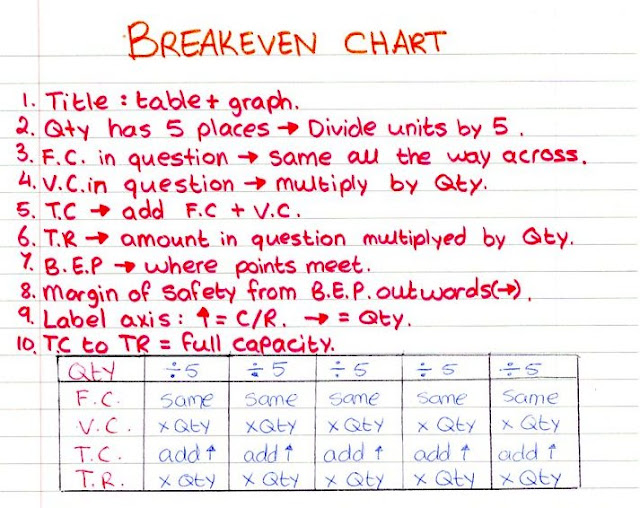 BREAKEVEN CHART
1. Title : table + graph.
2. Qty has 5 places → Divide units by 5 .
3. F.C. in question → same all the way across.
4. V.C. in question → multiply by Qty.
5. T.C → add F.C + V.C.
6. T.R → amount in question multiplyed by Qty.
7. B.E.P → where points meet.
8. Margin of Safety from B.E.P. outwords(→).
9. Label axis : ↑ = C/R. → = Qty.
10. T.C to TR = full capacity.
Qty ÷5 ÷5 ÷5 ÷5 ÷5
F.C. same same same same same
V.C. x Qty x Qty x Qty x Qty x Qty
T.C. add ↑ add ↑ add ↑ add ↑ add ↑
T.R. x Qty x Qty x Qty x Qty x Qty